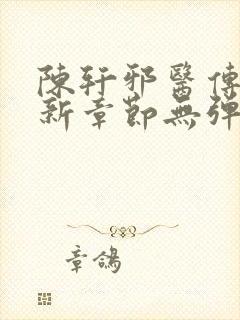 陳軒邪醫傳
新章節無彈
章鴿